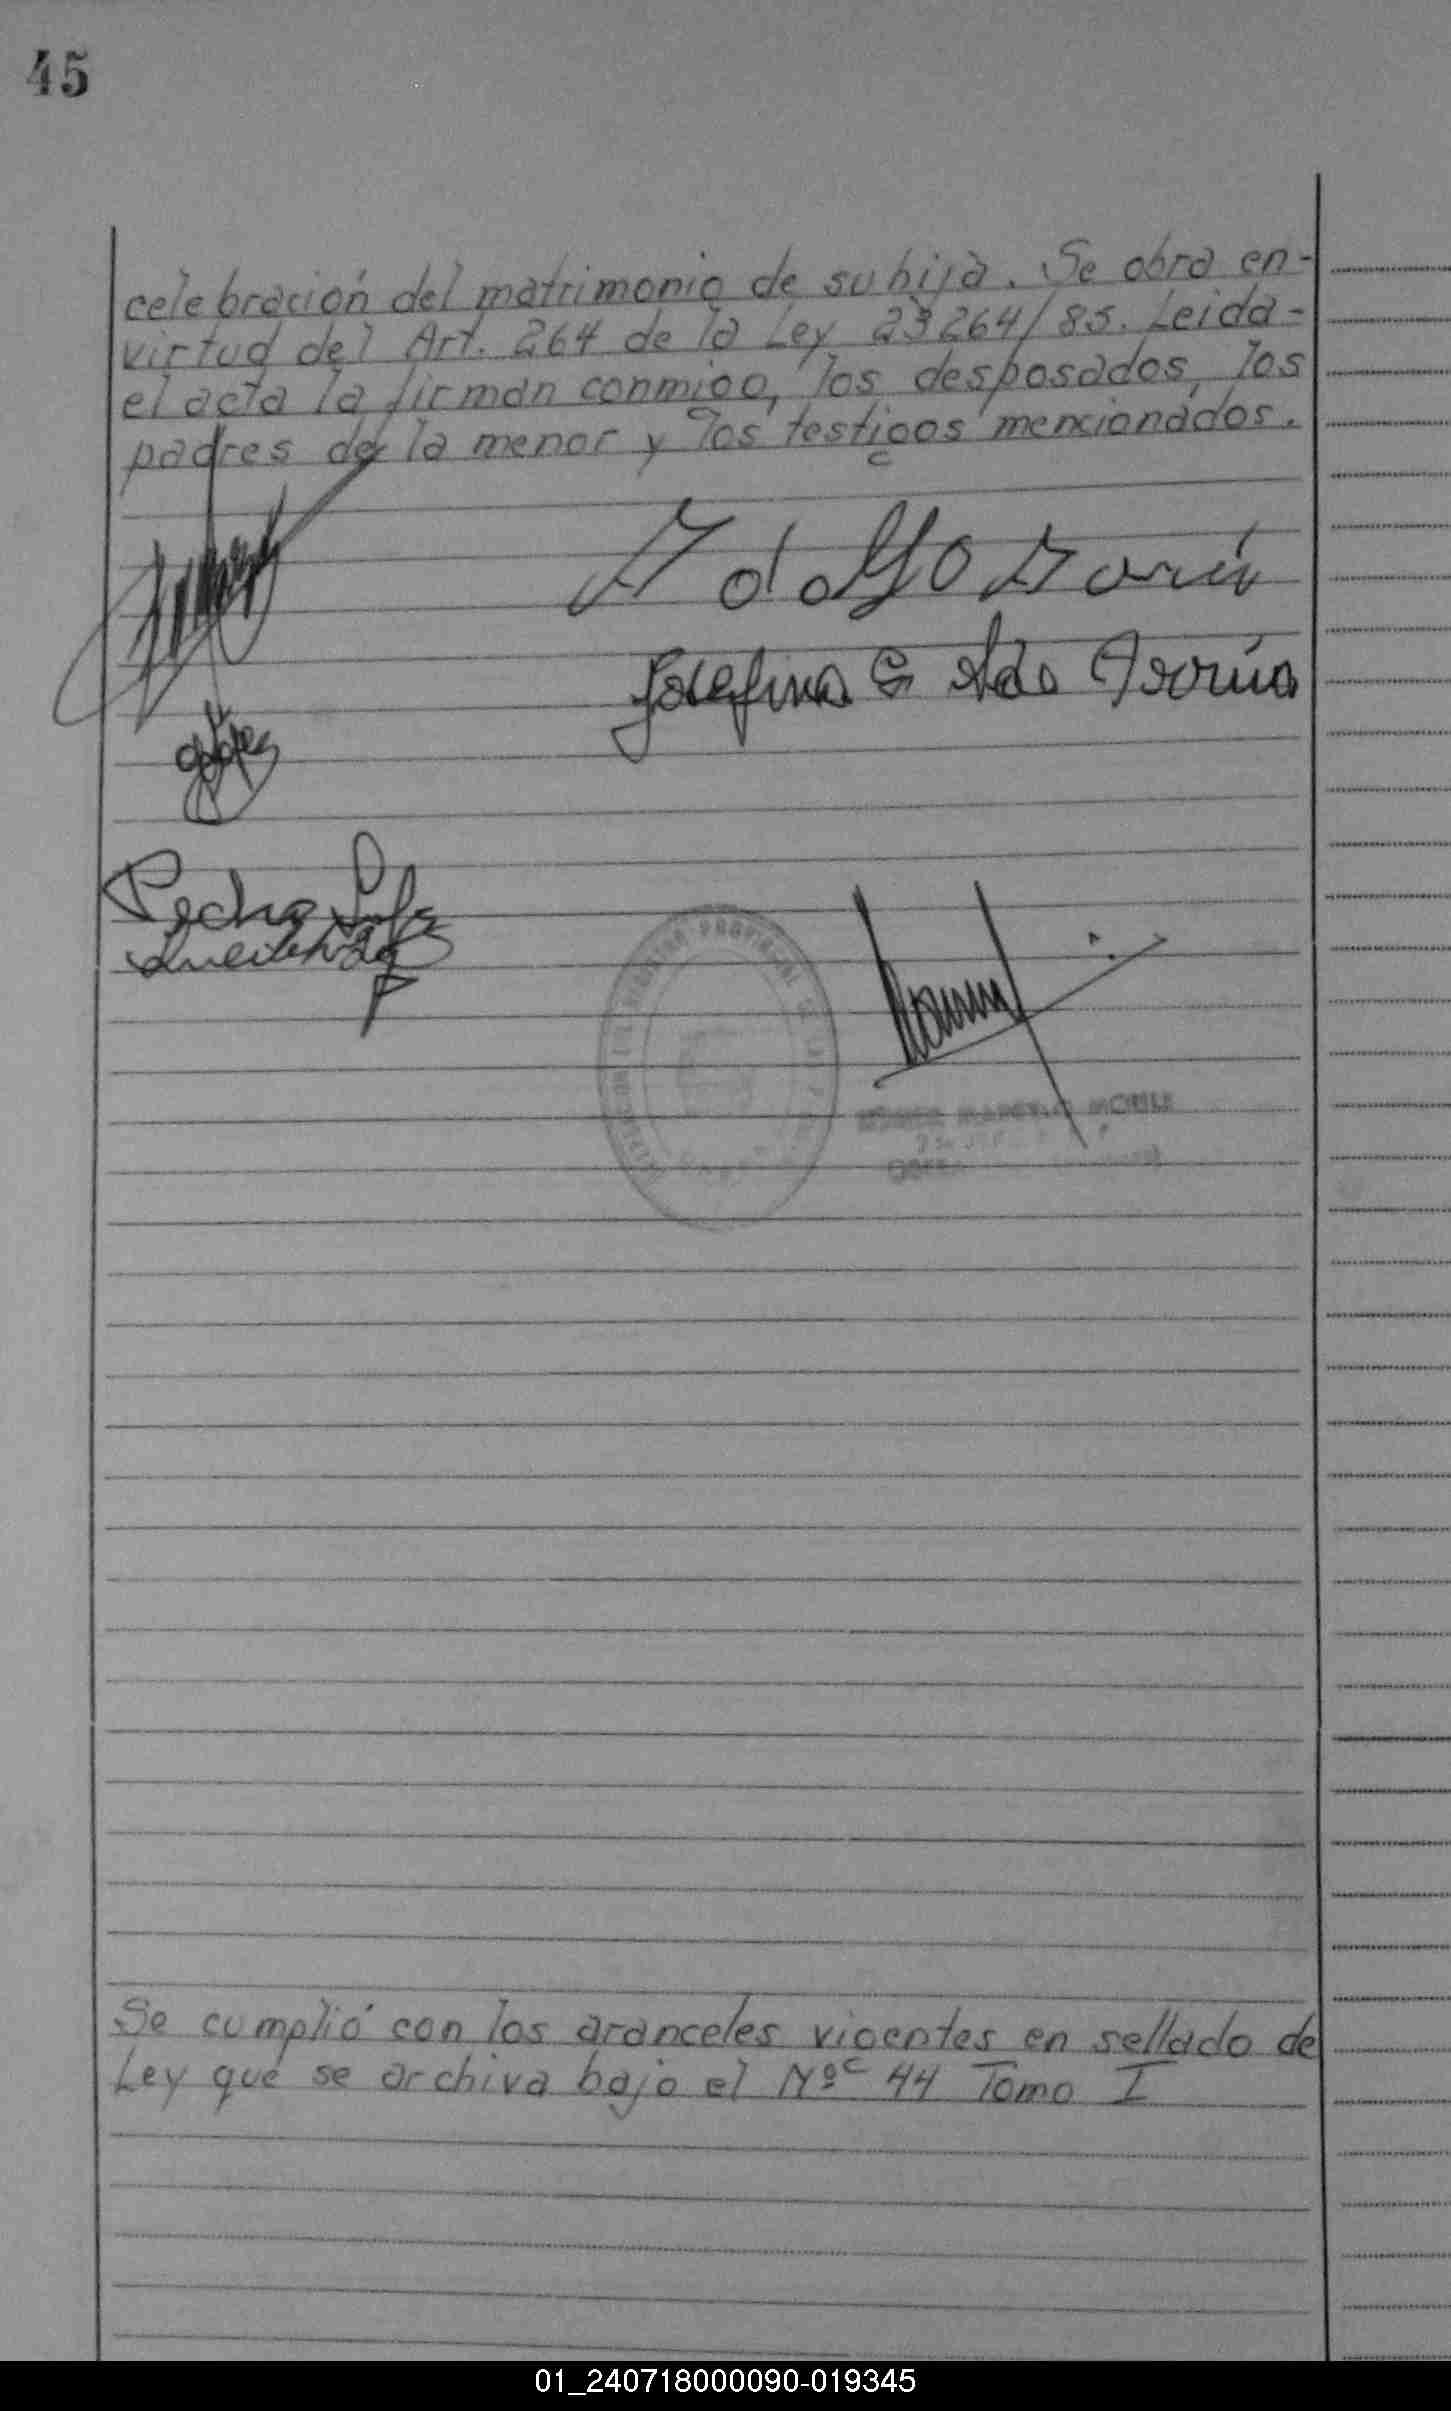 45
celebración del matrimonio de su hija. Se obra en-
virtud del Art. 264 de la Ley 23264/85. Leida-
el acta la firman conmigo, los desposados, los
padres de la menor y los testigos mencionados.
Adolfo
Josefina G de Arrúa
Pedro
PROVINCIAL DE LAS
MORILI
Se cumplió con los aranceles vigentes en sellado de
Ley que se archiva bajo el Nº 44 Tomo I
01_240718000090-019345